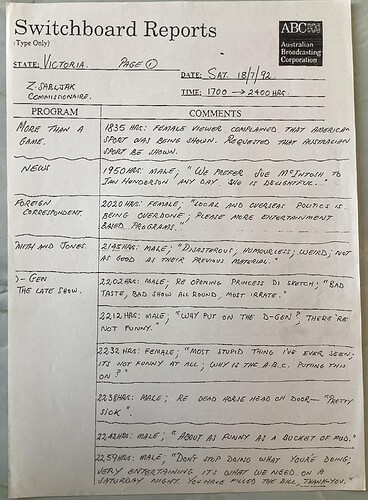 Switchboard Reports
(Type Only)
ABC
Australian
Broadcasting
Corporation
STATE: VICTORIA. PAGE 1
DATE: SAT. 18/7/92
Z. SABLJAK
COMMISSIONAIRE.
TIME: 1700 → 2400 HRS.
PROGRAM COMMENTS
MORE THAN A
GAME.
1835 HRS: FEMALE VIEWER COMPLAINED THAT AMERICAN
SPORT WAS BEING SHOWN. REQUESTED THAT AUSTRALIAN
SPORT BE SHOWN.
NEWS
1950 HRS: MALE; "WE PREFER SUE McINTOSH TO
IAN HENDERSON ANY DAY. SHE IS DELIGHTFUL."
FOREIGN
CORRESPONDENT.
2020 HRS: FEMALE; "LOCAL AND OVERSEAS POLITICS IS
BEING OVERDONE; PLEASE MORE ENTERTAINMENT
BASED PROGRAMS."
SMITH AND JONES.
2145 HRS: MALE; "DISASTEROUS; HUMOURLESS; WEIRD; NOT
AS GOOD AS THEIR PREVIOUS MATERIAL."
D-GEN
THE LATE SHOW.
2202 HRS: MALE; RE OPENING PRINCESS DI SKETCH; "BAD
TASTE, BAD SHOW ALL ROUND, MOST IRRATE.
2212 HRS: MALE; "WHY PUT ON THE D-GEN? THERE'RE
NOT FUNNY."
2232 HRS: FEMALE; "MOST STUPID THING I'VE EVER SEEN;
ITS NOT FUNNY AT ALL; WHY IS THE A.B.C. PUTTING THIS
ON?"
2238 HRS: MALE; RE DEAD HORSE HEAD ON DOOR— "PRETTY
SICK".
2242 HRS: MALE; "ABOUT AS FUNNY AS A BUCKET OF MUD."
2259 HRS: MALE; "DON'T STOP DOING WHAT YOU'RE DOING;
VERY ENTERTAINING. IT'S WHAT WE NEED ON A
SATURDAY NIGHT. YOU HAVE FILLED THE BILL, THANK-YOU."